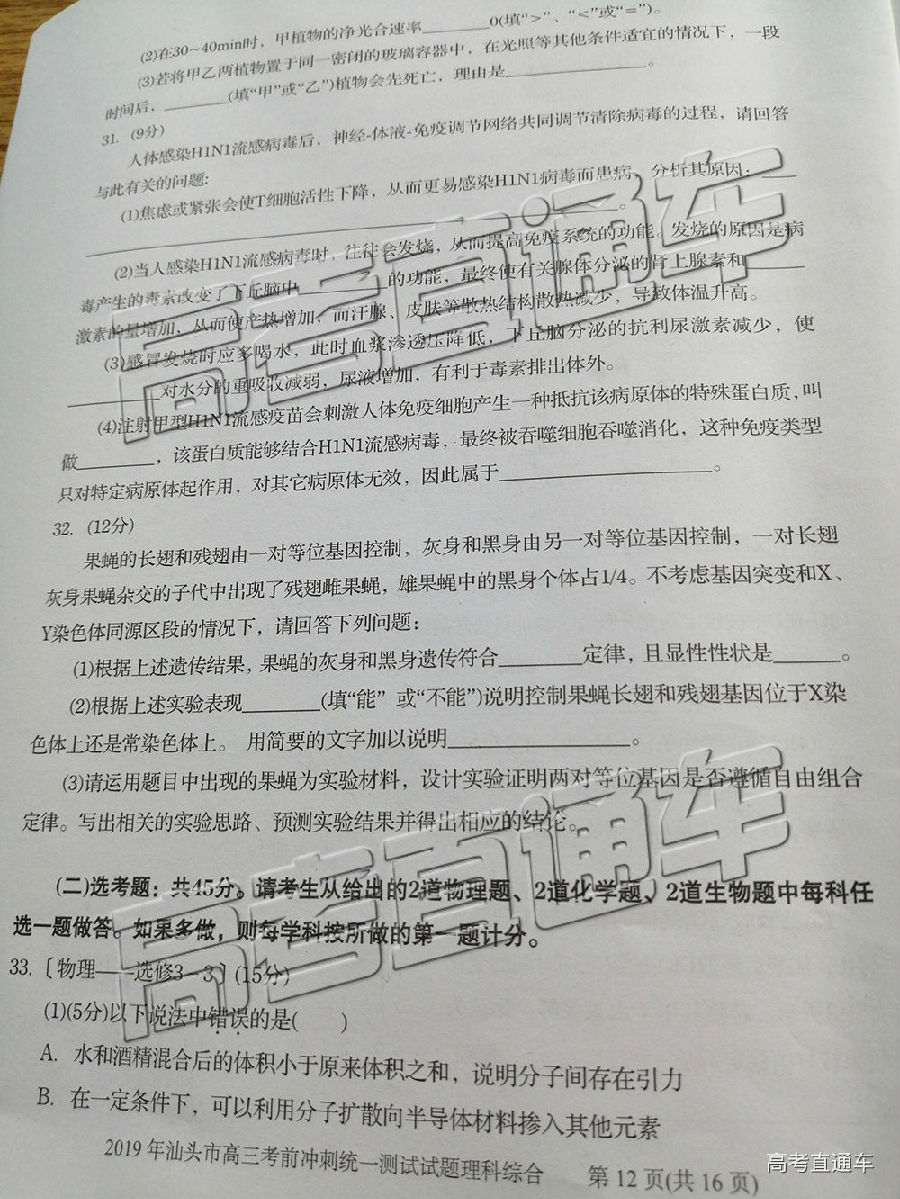 (2)在30~40min时，甲植物的净光合速率______0(填“>”、“<”或“=”)。
(3)若将甲乙两植物置于同一密闭的玻璃容器中，在光照等其他条件适宜的情况下，一段
时间后，______(填“甲”或“乙”)植物会先死亡，理由是____________。
31. (9分)
人体感染H1N1流感病毒后，神经-体液-免疫调节网络共同调节清除病毒的过程，请回答
与此有关的问题:
(1)焦虑或紧张会使T细胞活性下降，从而更易感染H1N1病毒而患病，分析其原因：___
____________。
(2)当人感染H1N1流感病毒时，往往会发烧，从而提高免疫系统的功能。发烧的原因是病
毒产生的毒素改变了下丘脑中________的功能，最终使有关腺体分泌的肾上腺素和______
激素的量增加，从而使产热增加，而汗腺、皮肤等散热结构散热减少，导致体温升高。
(3)感冒发烧时应多喝水，此时血浆渗透压降低，下丘脑分泌的抗利尿激素减少，使
________对水分的重吸收减弱，尿液增加，有利于毒素排出体外。
(4)注射甲型H1N1流感疫苗会刺激人体免疫细胞产生一种抵抗该病原体的特殊蛋白质，叫
做_______，该蛋白质能够结合H1N1流感病毒，最终被吞噬细胞吞噬消化，这种免疫类型
只对特定病原体起作用，对其它病原体无效，因此属于____________________。
32. (12分)
果蝇的长翅和残翅由一对等位基因控制，灰身和黑身由另一对等位基因控制，一对长翅
灰身果蝇杂交的子代中出现了残翅雌果蝇，雄果蝇中的黑身个体占1/4。不考虑基因突变和X、
Y染色体同源区段的情况下，请回答下列问题：
(1)根据上述遗传结果，果蝇的灰身和黑身遗传符合________定律，且显性性状是______。
(2)根据上述实验表现_______(填“能”或“不能”)说明控制果蝇长翅和残翅基因位于X染
色体上还是常染色体上。 用简要的文字加以说明________________。
(3)请运用题目中出现的果蝇为实验材料，设计实验证明两对等位基因是否遵循自由组合
定律。写出相关的实验思路、预测实验结果并得出相应的结论。
(二)选考题：共45分。请考生从给出的2道物理题、2道化学题、2道生物题中每科任
选一题做答。如果多做，则每学科按所做的第一题计分。
33.〔物理——选修3-3〕(15分)
(1)(5分)以下说法中错误的是(　　)
A. 水和酒精混合后的体积小于原来体积之和，说明分子间存在引力
B. 在一定条件下，可以利用分子扩散向半导体材料掺入其他元素
2019年汕头市高三考前冲刺统一测试试题理科综合 第12页(共16页)
高考直通车
高考直通车
高考直通车